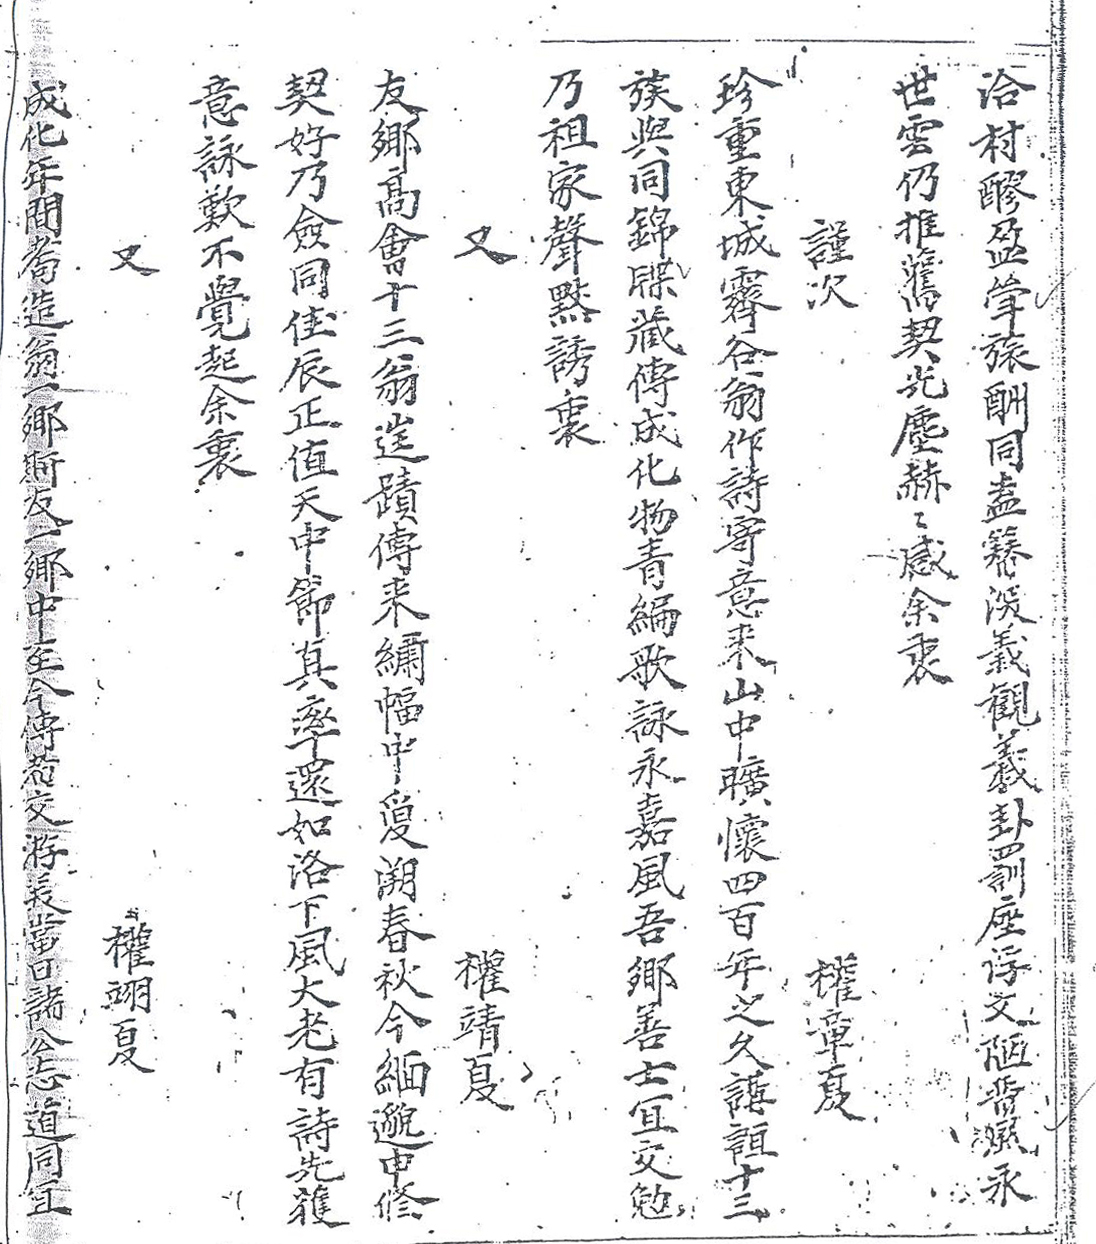 洽村醪盈觶旅酬同盍簪深義觀羲卦四訓座浮文陋晋㷼永
世雲仍推舊契光塵赫〻感余衷
謹次 權章夏
珍重東城霽谷翁作詩寄意来山中曠懷四百年之久講誼十三
族與同錦牒藏傳成化物青編歌詠永嘉風吾鄉善士宜交勉
乃祖家聲黙誘衷
又 權靖夏
友鄉高會十三翁逬蹟傳来繡幅中爰溯春秋今緬邈申修
契好乃僉同佳辰正值天中節真率還如洛下風大老有詩先獲
意詠歎不覺起余衷
又 權翊夏
成化年間耈造翁一鄉斯友一鄉中至今傳若交游長當日諸公志道同宜